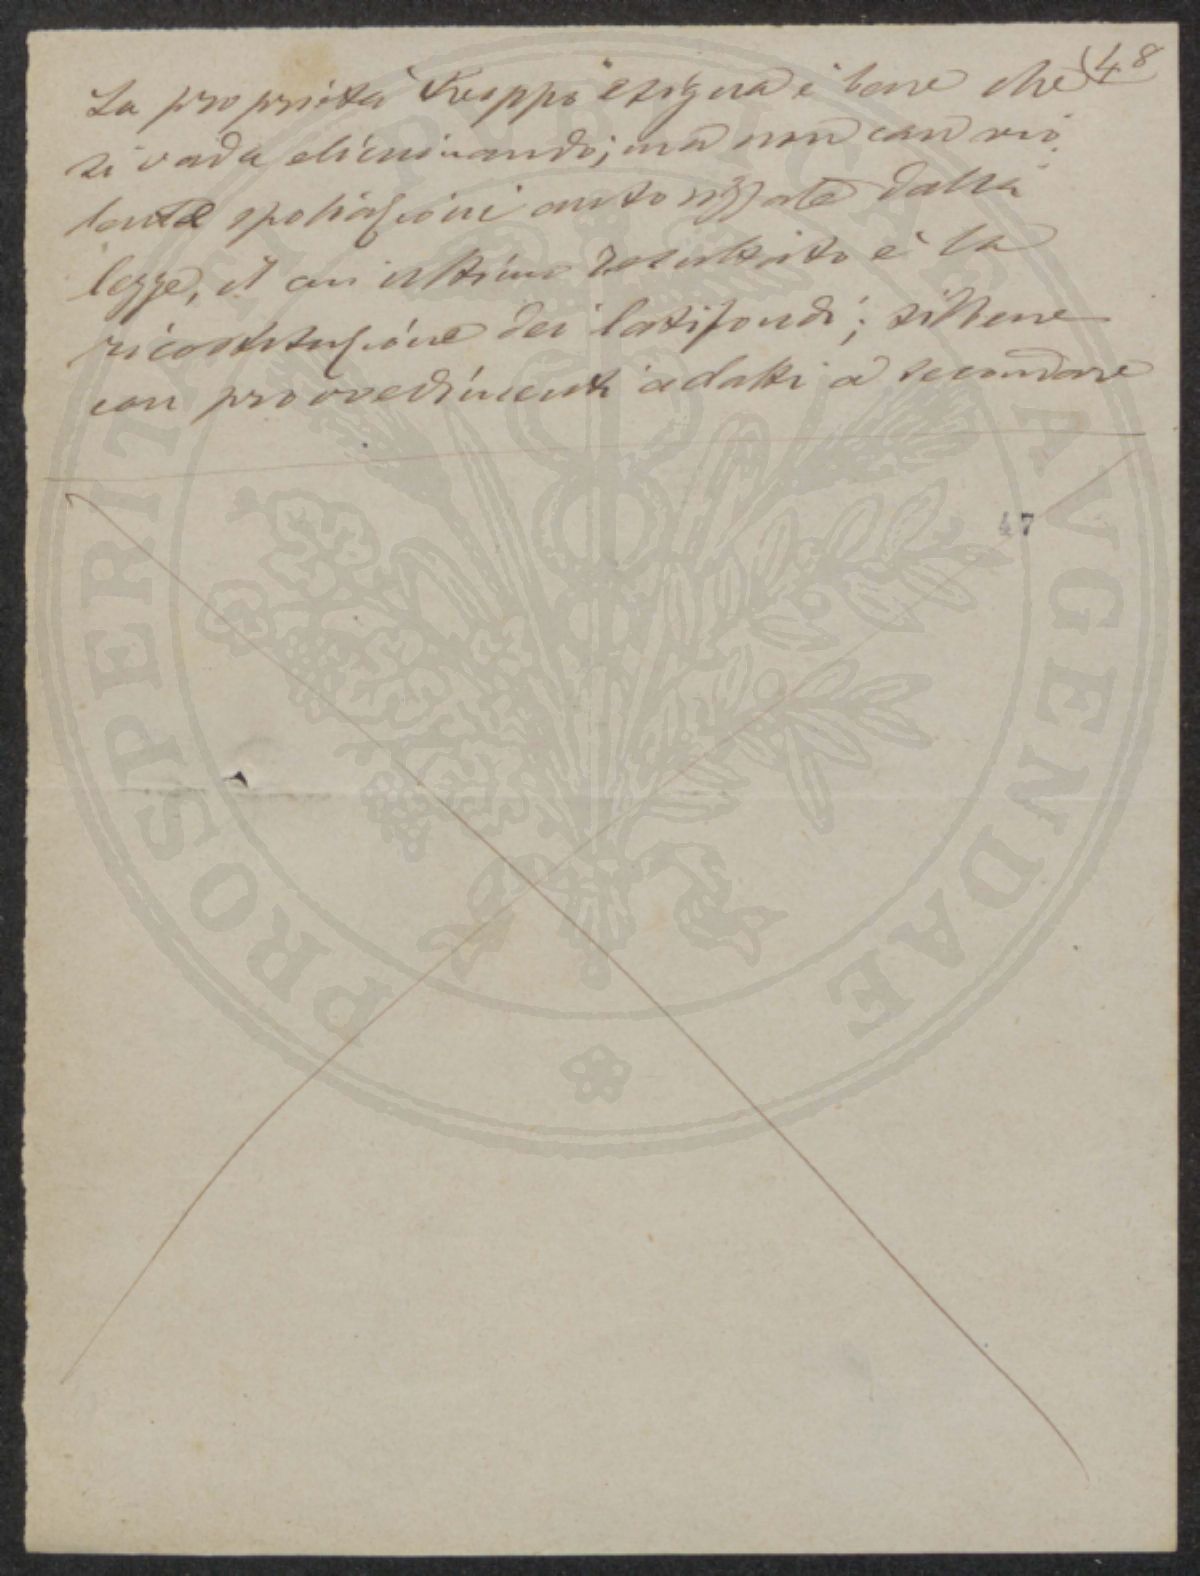 48
La proprietà troppo esigua è bene che
si vada eliminando; ma non con vio
lente spoliazioni autorizzate dalla
legge, il cui ultimo resultato è la
ricostituzione dei latifondi; sibbene
con provvedimenti adatti a secondare
47
PROSPERITATI PVBLICAE AVGENDAE